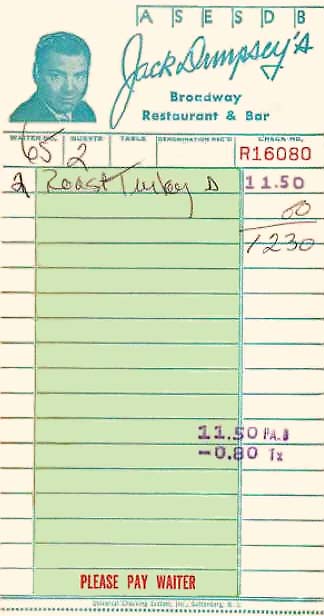 A S E S D B
Jack Dempsey's
Broadway
Restaurant & Bar
WAITER NO. GUESTS TABLE DENOMINATION REC'D CHECK NO.
65 2 R16080
2 Roast Turkey D 11.50
80
1230
11.50 PA.B
-0.80 Tx
PLEASE PAY WAITER
Universal Checking System, Inc., Guttenberg, N. J.